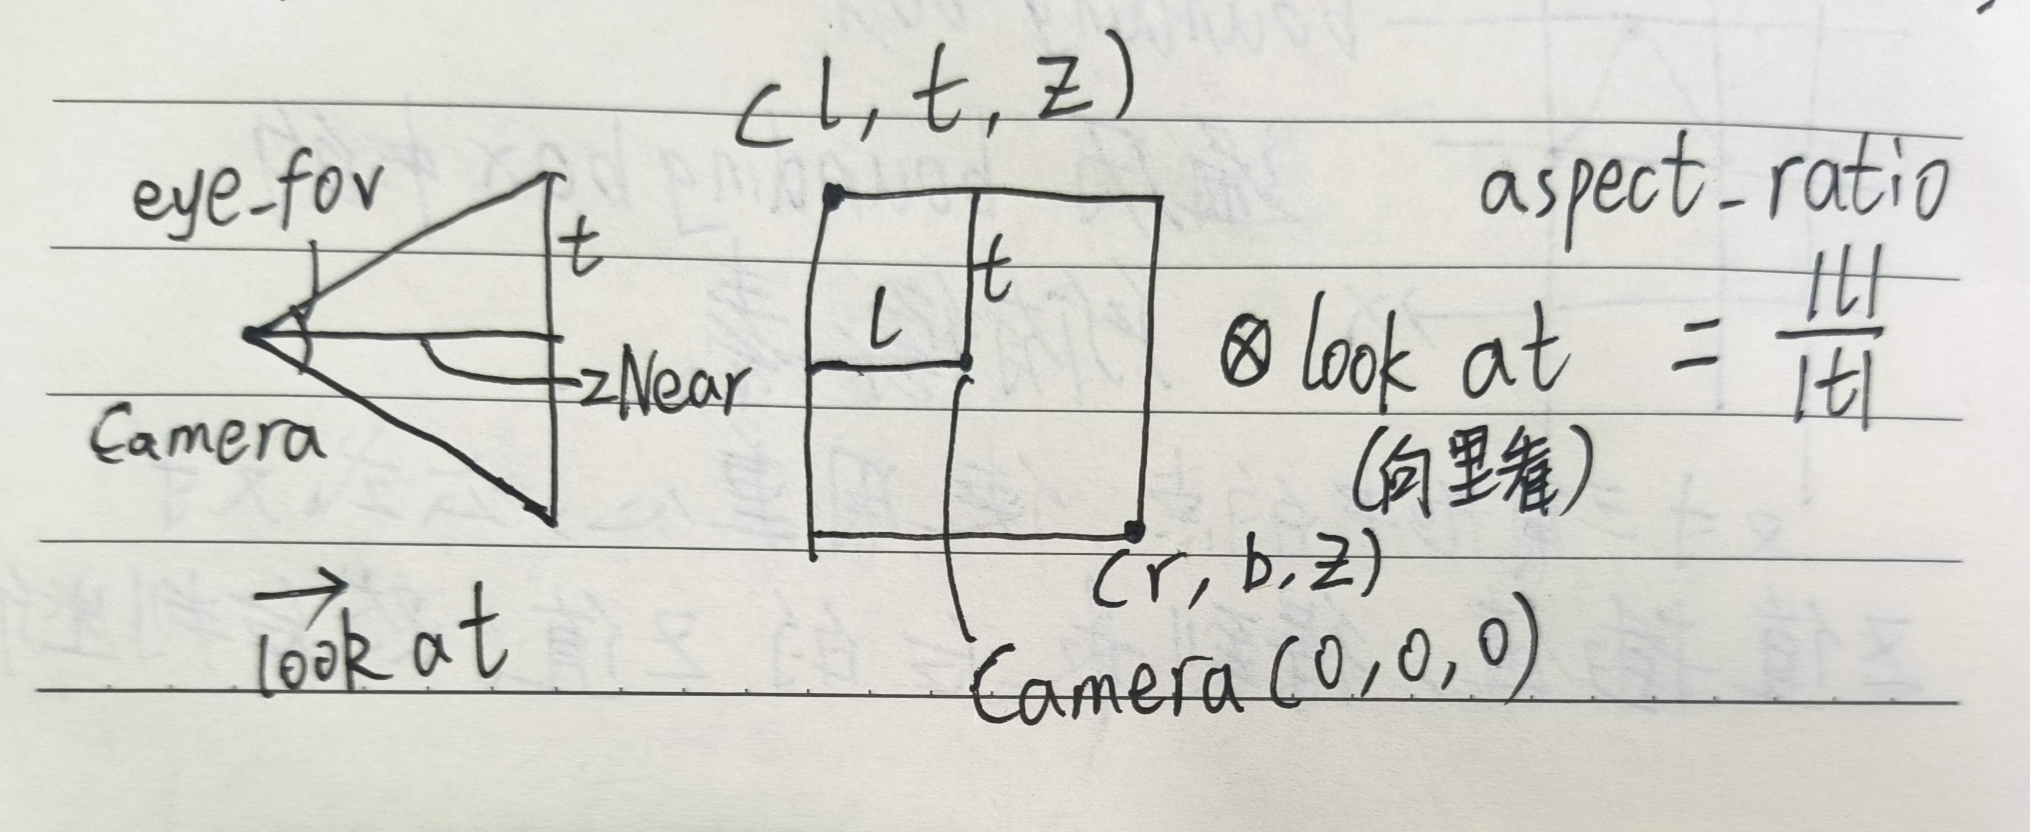 (l, t, z)
eye-fov
t
zNear
Camera
look at
l
t
(r, b, z)
Camera (0, 0, 0)
⊗ look at
(向里看)
aspect-ratio
= |l|
|t|